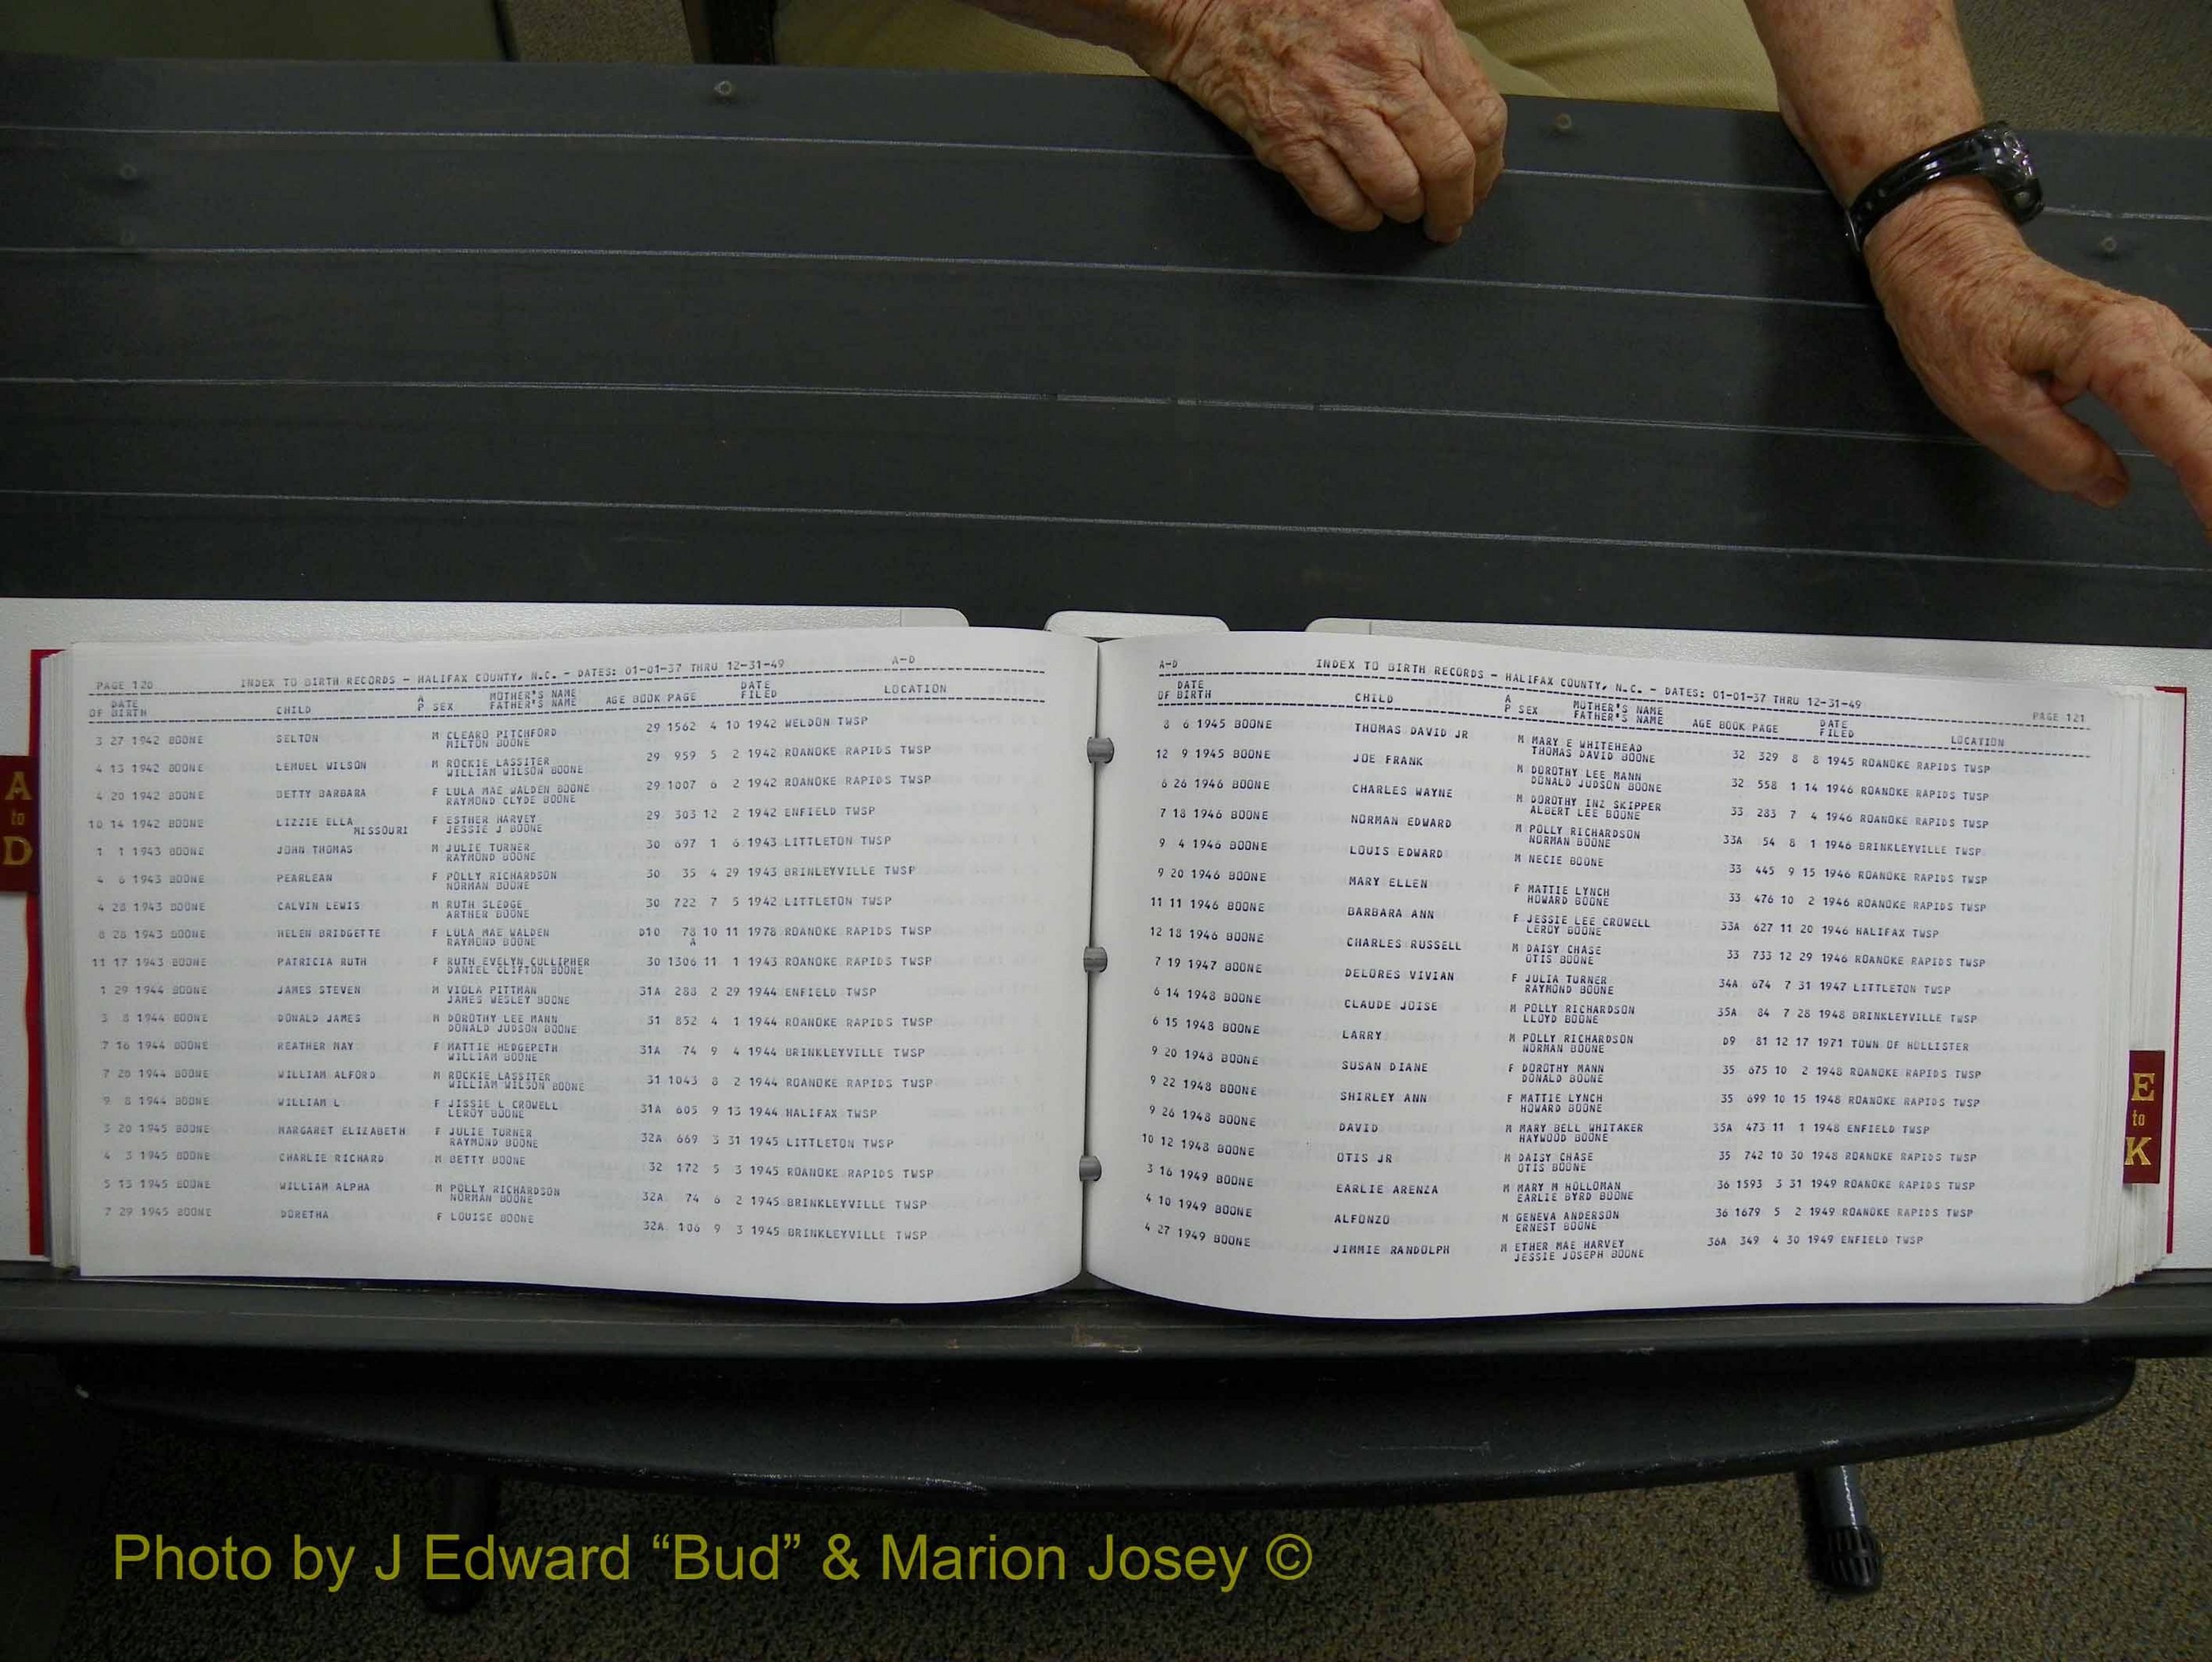 PAGE 120 INDEX TO BIRTH RECORDS - HALIFAX COUNTY, N.C. - DATES: 01-01-37 THRU 12-31-49 A-D
DATE A MOTHER'S NAME DATE
OF BIRTH CHILD P SEX FATHER'S NAME AGE BOOK PAGE FILED LOCATION
3 27 1942 BOONE SELTON M CLEARO PITCHFORD 29 1562 4 10 1942 WELDON TWSP
MILTON BOONE
4 13 1942 BOONE LEMUEL WILSON M ROCKIE LASSITER 29 959 5 2 1942 ROANOKE RAPIDS TWSP
WILLIAM WILSON BOONE
4 20 1942 BOONE BETTY BARBARA F LULA MAE WALDEN BOONE 29 1007 6 2 1942 ROANOKE RAPIDS TWSP
RAYMOND CLYDE BOONE
10 14 1942 BOONE LIZZIE ELLA F ESTHER HARVEY 29 303 12 2 1942 ENFIELD TWSP
MISSOURI JESSIE J BOONE
1 1 1943 BOONE JOHN THOMAS M JULIE TURNER 30 697 1 6 1943 LITTLETON TWSP
RAYMOND BOONE
4 6 1943 BOONE PEARLEAN F POLLY RICHARDSON 30 35 4 29 1943 BRINLEYVILLE TWSP
NORMAN BOONE
4 28 1943 BOONE CALVIN LEWIS M RUTH SLEDGE 30 722 7 5 1942 LITTLETON TWSP
ARTHER BOONE
8 28 1943 BOONE HELEN BRIDGETTE F LULA MAE WALDEN D10 78 10 11 1978 ROANOKE RAPIDS TWSP
RAYMOND BOONE A
11 17 1943 BOONE PATRICIA RUTH F RUTH EVELYN CULLIPHER 30 1306 11 1 1943 ROANOKE RAPIDS TWSP
DANIEL CLIFTON BOONE
1 29 1944 BOONE JAMES STEVEN M VIOLA PITTMAN 31A 288 2 29 1944 ENFIELD TWSP
JAMES WESLEY BOONE
3 8 1944 BOONE DONALD JAMES M DOROTHY LEE MANN 31 852 4 1 1944 ROANOKE RAPIDS TWSP
DONALD JUDSON BOONE
7 16 1944 BOONE REATHER MAY F MATTIE HEDGEPETH 31A 74 9 4 1944 BRINKLEYVILLE TWSP
WILLIAM BOONE
7 20 1944 BOONE WILLIAM ALFORD M ROCKIE LASSITER 31 1043 8 2 1944 ROANOKE RAPIDS TWSP
WILLIAM WILSON BOONE
9 8 1944 BOONE WILLIAM L F JISSIE L CROWELL 31A 605 9 13 1944 HALIFAX TWSP
LEROY BOONE
3 20 1945 BOONE MARGARET ELIZABETH F JULIE TURNER 32A 669 3 31 1945 LITTLETON TWSP
RAYMOND BOONE
4 3 1945 BOONE CHARLIE RICHARD M BETTY BOONE 32 172 5 3 1945 ROANOKE RAPIDS TWSP
5 13 1945 BOONE WILLIAM ALPHA M POLLY RICHARDSON 32A 74 6 2 1945 BRINKLEYVILLE TWSP
NORMAN BOONE
7 29 1945 BOONE DORETHA F LOUISE BOONE 32A 106 9 3 1945 BRINKLEYVILLE TWSP
A-D INDEX TO BIRTH RECORDS - HALIFAX COUNTY, N.C. - DATES: 01-01-37 THRU 12-31-49 PAGE 121
DATE A MOTHER'S NAME DATE
OF BIRTH CHILD P SEX FATHER'S NAME AGE BOOK PAGE FILED LOCATION
8 6 1945 BOONE THOMAS DAVID JR M MARY E WHITEHEAD 32 329 8 8 1945 ROANOKE RAPIDS TWSP
THOMAS DAVID BOONE
12 9 1945 BOONE JOE FRANK M DOROTHY LEE MANN 32 558 1 14 1946 ROANOKE RAPIDS TWSP
DONALD JUDSON BOONE
6 26 1946 BOONE CHARLES WAYNE M DOROTHY INZ SKIPPER 33 283 7 4 1946 ROANOKE RAPIDS TWSP
ALBERT LEE BOONE
7 18 1946 BOONE NORMAN EDWARD M POLLY RICHARDSON 33A 54 8 1 1946 BRINKLEYVILLE TWSP
NORMAN BOONE
9 4 1946 BOONE LOUIS EDWARD M NECIE BOONE 33 445 9 15 1946 ROANOKE RAPIDS TWSP
9 20 1946 BOONE MARY ELLEN F MATTIE LYNCH 33 476 10 2 1946 ROANOKE RAPIDS TWSP
HOWARD BOONE
11 11 1946 BOONE BARBARA ANN F JESSIE LEE CROWELL 33A 627 11 20 1946 HALIFAX TWSP
LEROY BOONE
12 18 1946 BOONE CHARLES RUSSELL M DAISY CHASE 33 733 12 29 1946 ROANOKE RAPIDS TWSP
OTIS BOONE
7 19 1947 BOONE DELORES VIVIAN F JULIA TURNER 34A 674 7 31 1947 LITTLETON TWSP
RAYMOND BOONE
6 14 1948 BOONE CLAUDE JOISE M POLLY RICHARDSON 35A 84 7 28 1948 BRINKLEYVILLE TWSP
LLOYD BOONE
6 15 1948 BOONE LARRY M POLLY RICHARDSON D9 81 12 17 1971 TOWN OF HOLLISTER
NORMAN BOONE
9 20 1948 BOONE SUSAN DIANE F DOROTHY MANN 35 675 10 2 1948 ROANOKE RAPIDS TWSP
DONALD BOONE
9 22 1948 BOONE SHIRLEY ANN F MATTIE LYNCH 35 699 10 15 1948 ROANOKE RAPIDS TWSP
HOWARD BOONE
9 26 1948 BOONE DAVID M MARY BELL WHITAKER 35A 473 11 1 1948 ENFIELD TWSP
HAYWOOD BOONE
10 12 1948 BOONE OTIS JR M DAISY CHASE 35 742 10 30 1948 ROANOKE RAPIDS TWSP
OTIS BOONE
3 16 1949 BOONE EARLIE ARENZA M MARY M HOLLOMAN 36 1593 3 31 1949 ROANOKE RAPIDS TWSP
EARLIE BYRD BOONE
4 10 1949 BOONE ALFONZO M GENEVA ANDERSON 36 1679 5 2 1949 ROANOKE RAPIDS TWSP
ERNEST BOONE
4 27 1949 BOONE JIMMIE RANDOLPH M ETHER MAE HARVEY 36A 349 4 30 1949 ENFIELD TWSP
JESSIE JOSEPH BOONE
A
to
D
E
to
K
Photo by J Edward “Bud” & Marion Josey ©